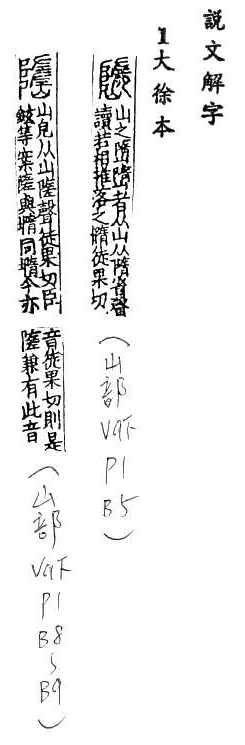 説文解字
1大徐本
山之墮墮者从山从憜省聲
讀若相推落之憜徒果切
(山部 V9下 P1 B5)
山皃从山隓聲徒果切臣
鉉等案隓與憜同憜今亦
音徒果切則是
隓兼有此音
(山部 V9下 P1 B8 5 B9)